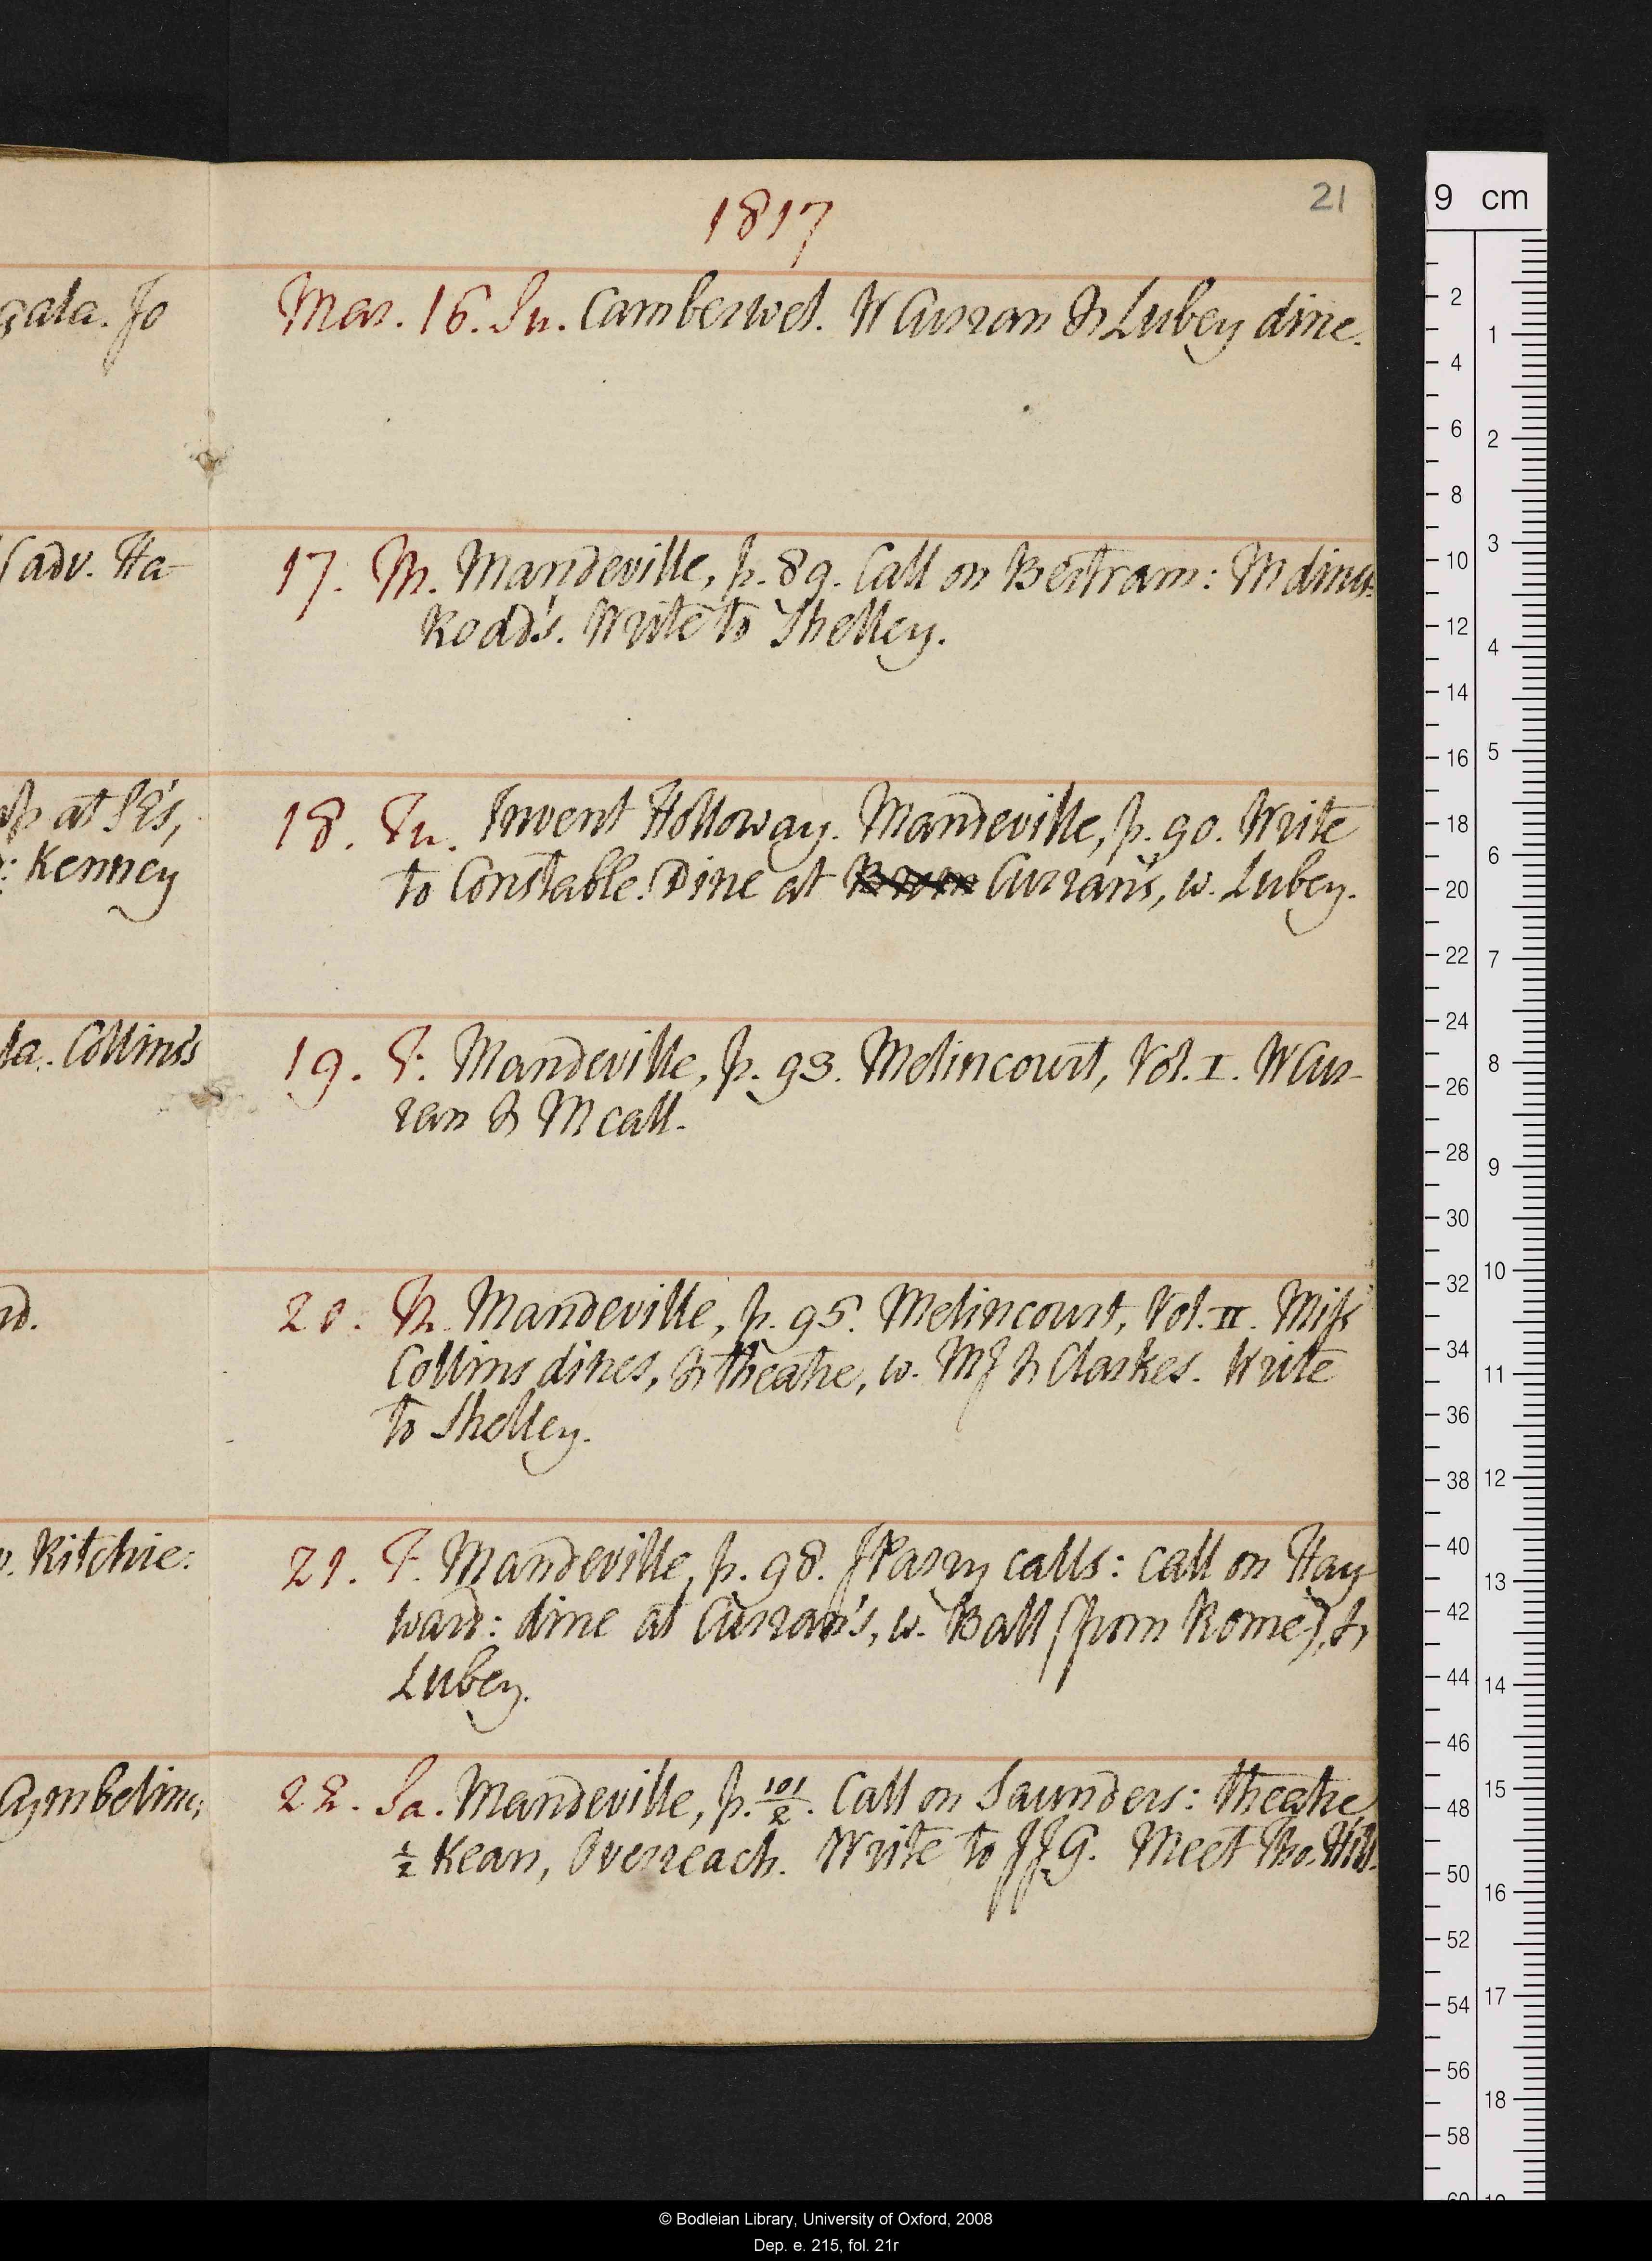 21
1817
gala. Jo
Mar. 16. Su. Camberwel. W Curran & Lubey dine.
(adv. Ha-
17. M. Mandeville, p. 89. Call on Bertram: M dines
Rodd's. Write to Shelley.
at
: Kenney
18. Tu. Invent Holloway. Mandeville, p. 90. Write
to Constable. Dine at Curran's, w. Lubey.
la. Collins's
19. W. Mandeville, p. 93. Melincourt, Vol. I. W Cur-
ran & M call.
nd.
20. Th. Mandeville, p. 95. Melincourt, Vol. II. Miss
Collins dines, & theatre, w. MJ & Clarkes. Write
to Shelley.
. Ritchie:
21. F. Mandeville, p. 98. J Parry calls: call on Hay
ward: dine at Curran's, w. Ball (from Rome), &
Lubey.
Cymbeline;
22. Sa. Mandeville, p. 101/2. Call on Saunders: theatre,
½ Kean, Overreach. Write to JJG. Meet Tho. Hill.
9 cm
2
4
6
8
10
12
14
16
18
20
22
24
26
28
30
32
34
36
38
40
42
44
46
48
50
52
54
56
58
60
1
2
3
4
5
6
7
8
9
10
11
12
13
14
15
16
17
18
© Bodleian Library, University of Oxford, 2008
Dep. e. 215, fol. 21r